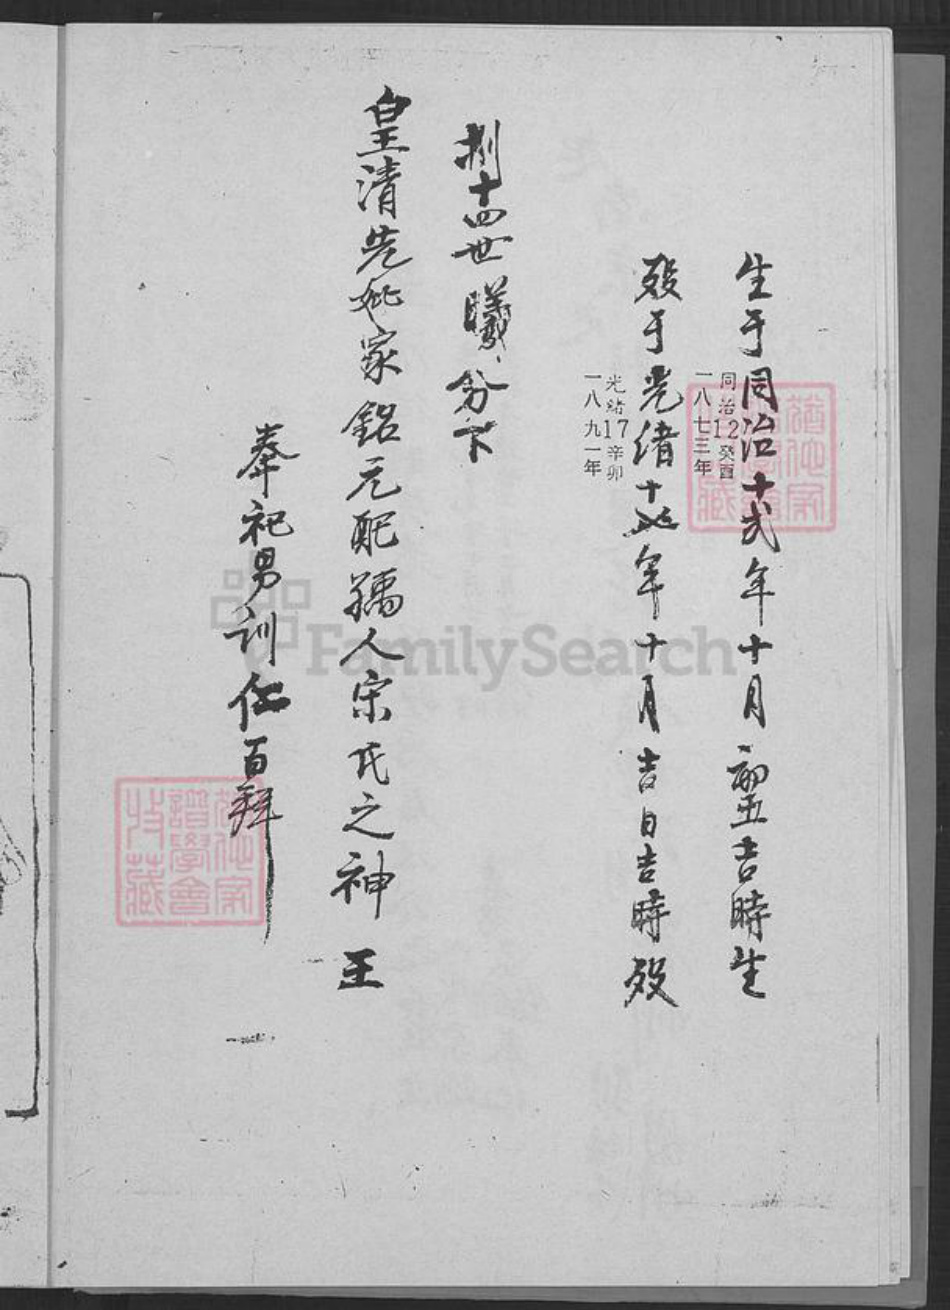 生于同治十弍年十月初五吉時生
同治12癸酉
一八七三年
歿于光緒十七年十月吉日吉時歿
光緒17辛卯
一八九一年
捌十四世曦份下
皇清先妣家鋁元配孺人宋氏之神王
奉祀男訓仁百拜
譜學會
收藏
FamilySearch